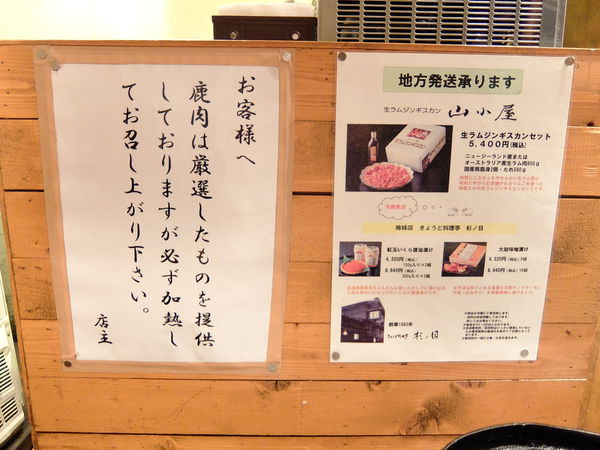 お客様へ
鹿肉は厳選したものを提供
しておりますが必ず加熱し
てお召し上がり下さい。
店主
地方発送承ります
生ラムジンギスカン 山小屋
生ラムジンギスカンセット
5,400円(税込)
ニュージーランド産または
オーストラリア産生ラム肉800g
国産豚脂身2個・たれ560g
冷蔵発送
姉妹店 きょうど料理亭 杉ノ目
紅玉いくら醤油漬け
4,320円(税込)
130g入り×2個
8,640円(税込)
300g入り×2個
大助味噌漬け
4,320円(税込) 5切
8,640円(税込) 10切
創業1963年
きょうど料理亭 杉ノ目